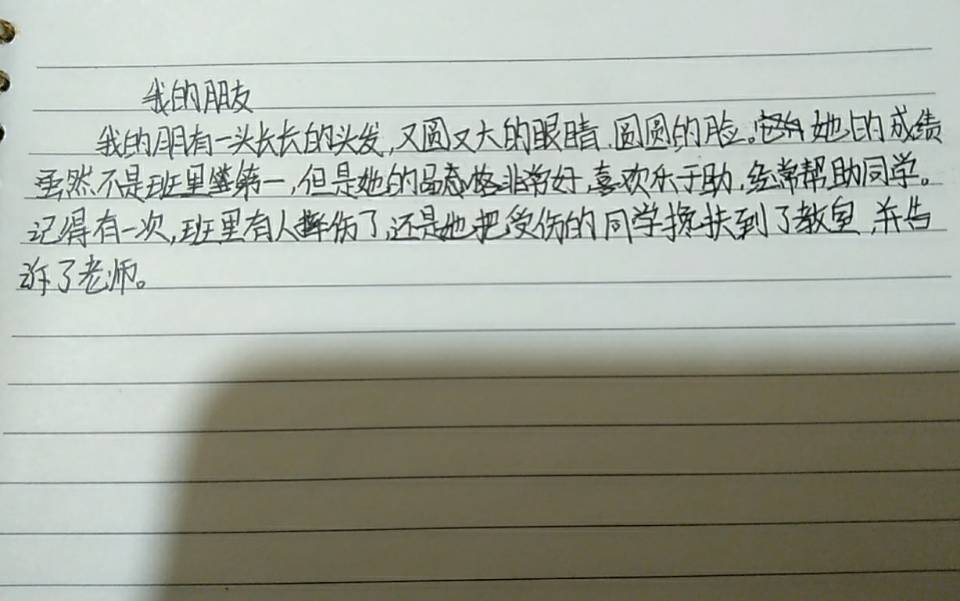 我的朋友
我的朋有一头长长的头发,又圆又大的眼睛.圆圆的脸。她的成绩
虽然不是班里第一,但是她的品格非常好,喜欢乐于助,经常帮助同学。
记得有一次,班里有人摔伤了,还是她把受伤的同学搀扶到了教室,并告
诉了老师。